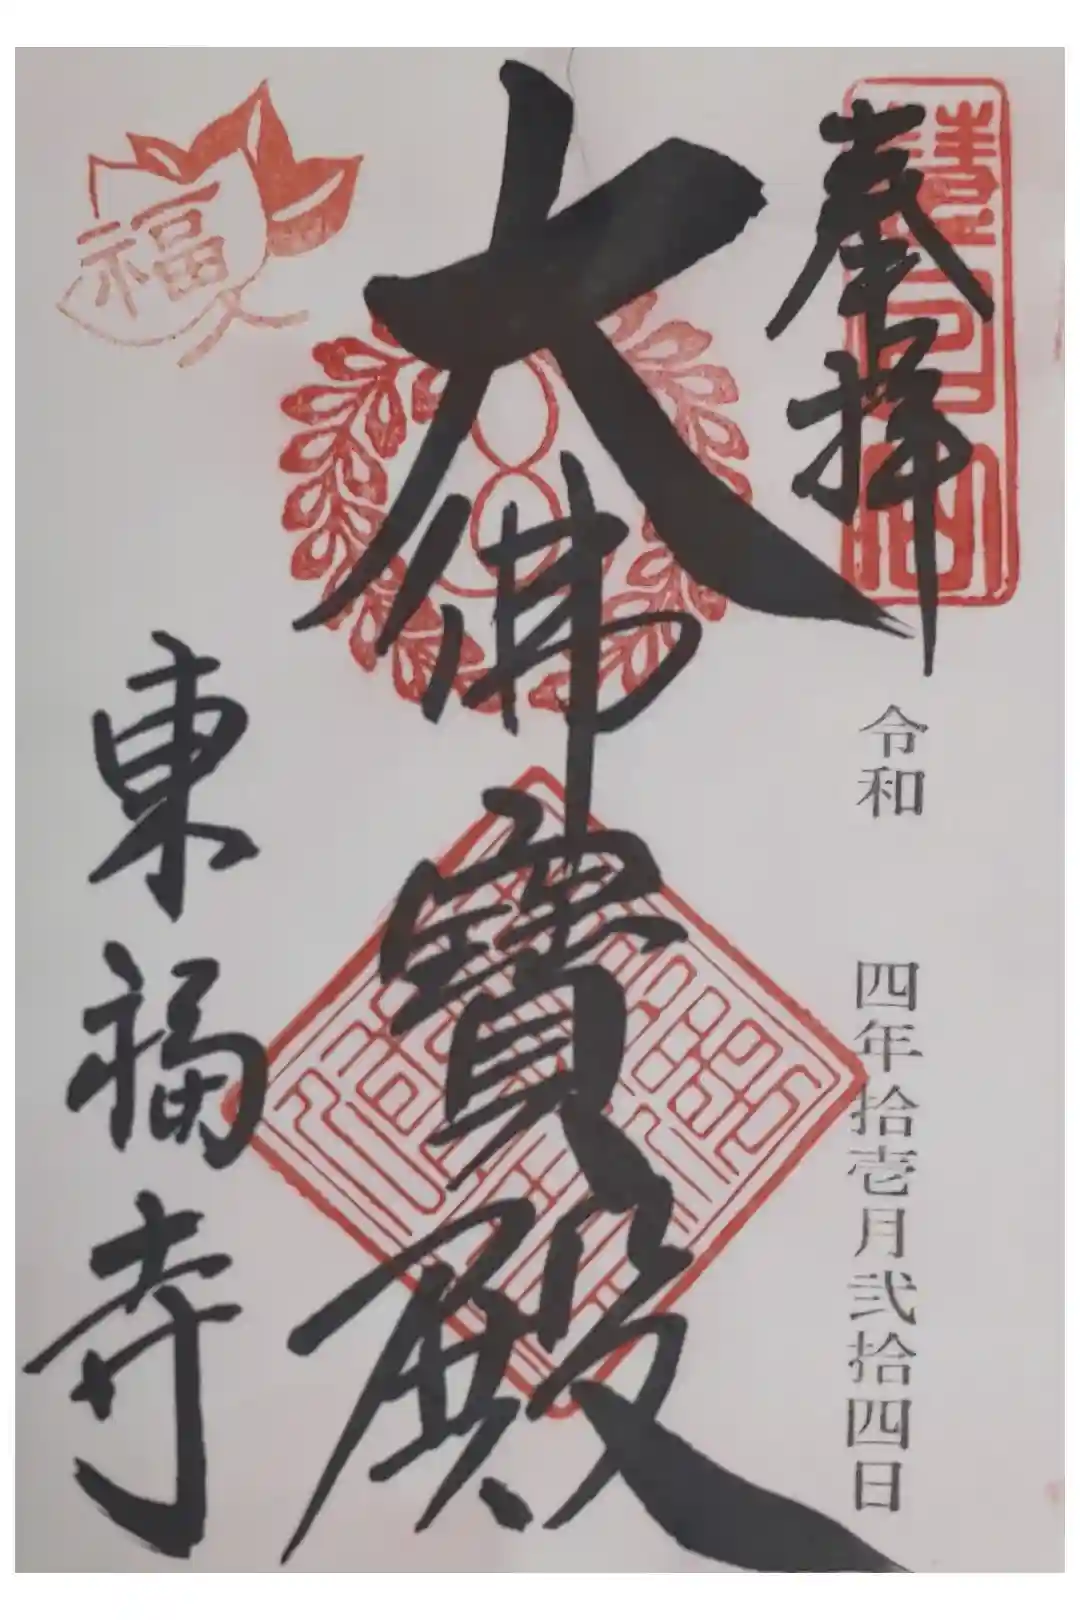 奉拜
令和 四年拾壱月弐拾四日
大佛寳殿
福
東福寺